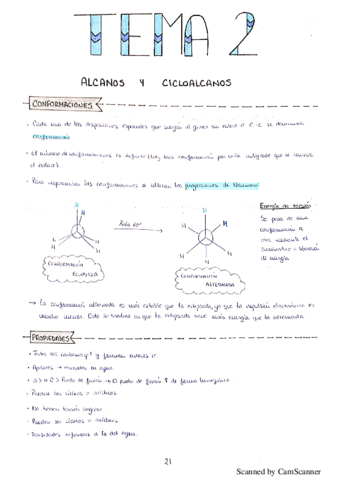 TEMA 2
ALCANOS Y CICLOALCANOS
CONFORMACIONES
· Cada una de las disposiciones espaciales que surgen al girar un enlace C-C se denomina
conformación
· El número de conformaciones es infinito (hay una conformación por cada grado que se
el enlace).
· Para representar las conformaciones se utilizan las proyecciones de Newman:
Energía de torsión
Se pasa de una
conformación a
otra mediante el
de energía
H
H
H
H
H
H
H
H
H
CONFORMACIÓN
ECLIPSADA
CONFORMACIÓN
ALTERNADA
→ La conformación alternada es más estable que la eclipsada, ya que la repulsión electrónica es
Esto se traduce en que la eclipsada tiene más energía que la alternada
PROPIEDADES
· Todos los carbonos sp³ y forman enlaces
· Apolares → insolubles en agua
· Pueden ser cíclicos o acíclicos
· No tienen tensión angular
· Pueden ser cíclicos o acíclicos
· Densidades inferiores a la del agua.
21
Scanned by CamScanner